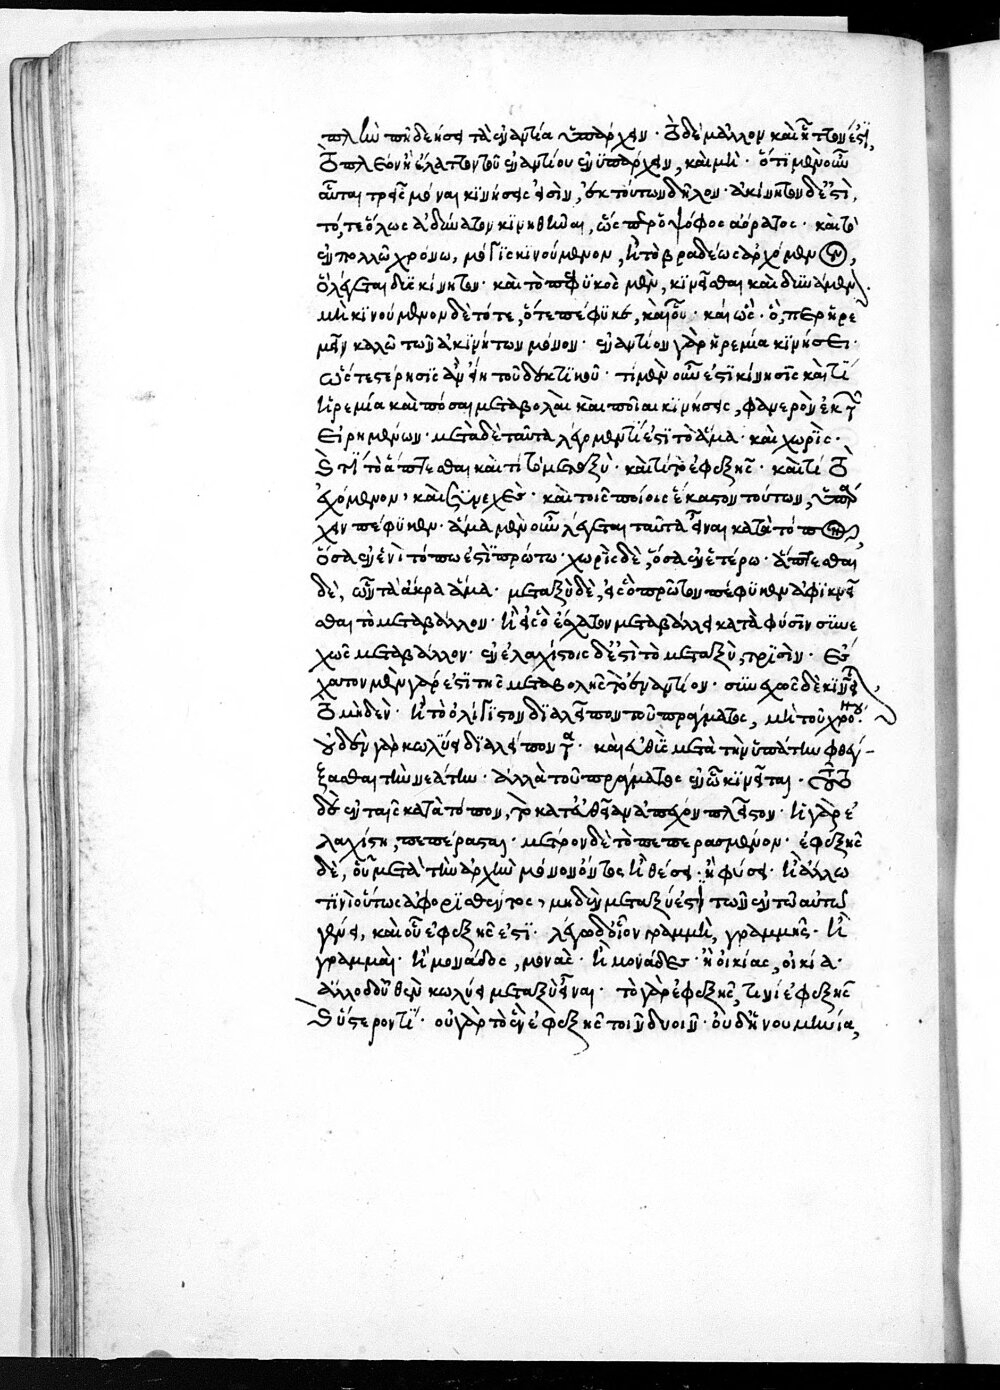 πλὴν πῆ δεήσει τἀναντία ὑπάρχειν· τὸ δὲ μᾶλλον καὶ ἧττόν ἐστι,
τὸ πλέον ἢ ἔλαττον τοῦ ἐναντίου ἐνυπάρχειν, καὶ μή· ὅτι μὲν οὖν
αὗται τρεῖς μόναι κινήσεις εἰσὶν, ἐκ τούτων δῆλον· ἀκίνητον δ' ἐστὶ,
τό, τε ὅλως ἀδύνατον κινηθῆναι, ὥσπερ ὁ ψόφος ἀόρατος· καὶ τὸ
ἐν πολλῷ χρόνῳ, μόλις κινούμενον, ἢ τὸ βραδέως ἀρχόμενον,
ὃ λέγεται δυσκίνητον· καὶ τὸ πεφυκὸς μὲν, κινεῖσθαι καὶ δυνάμενον.
μὴ κινούμενον δὲ τότε, ὅτε πέφυκε, καὶ οὗ· καὶ ὥς· ὅ, περ ἠρε
μεῖν καλῶ τῶν ἀκινήτων μόνον· ἐναντίον γὰρ ἠρεμία κινήσει·
ὥστε στέρησις ἂν εἴη τοῦ δεκτικοῦ· τί μὲν οὖν ἐστι κίνησις καὶ τί
ἠρεμία καὶ πόσαι μεταβολαὶ καὶ ποῖαι κινήσεις, φανερὸν ἐκ τῶν
εἰρημένων· μετὰ δὲ ταῦτα λέγωμεν τί ἐστι τὸ ἅμα· καὶ χωρίς·
καὶ τί τὸ ἅπτεσθαι καὶ τί τὸ μεταξύ· καὶ τί τὸ ἐφεξῆς· καὶ τί τὸ
ἐχόμενον, καὶ συνεχές· καὶ τοῖς ποίοις ἕκαστον τούτων, ὑπάρ
χειν πέφυκεν· ἅμα μὲν οὖν λέγεται ταῦτα εἶναι κατὰ τόπον,
ὅσα ἐν ἑνὶ τόπῳ ἐστὶ πρώτῳ· χωρὶς δὲ, ὅσα ἐν ἑτέρῳ· ἅπτεσθαι
δὲ, ὧν τὰ ἄκρα ἅμα· μεταξὺ δὲ, εἰς ὃ πρῶτον πέφυκεν ἀφικνεῖ
σθαι τὸ μεταβάλλον· ἢ εἰς ὃ ἔσχατον μεταβάλλει κατὰ φύσιν συνε
χῶς μεταβάλλον· ἐν ἐλαχίστοις δ' ἐστὶ τὸ μεταξὺ, τρισίν· ἔσ
χατον μὲν γάρ ἐστι τῆς μεταβολῆς τὸ ἐναντίον· συνεχῶς δὲ κινεῖται
τὸ μηδὲν· ἢ τὸ ὀλίγιστον διαλεῖπον τοῦ πράγματος, μὴ τοῦ χρόνου·
οὐδὲν γὰρ κωλύει διαλείπον τα· καὶ εὐθὺς μετὰ τὴν ὑπάτην φθέγ-
ξασθαι τὴν νεάτην· ἀλλὰ τοῦ πράγματος ἐν ᾧ κινεῖται· τοῦτο
δὲ ἐν ταῖς κατὰ τόπον, τὸ κατ' εὐθεῖαν ἀπέχον πλεῖστον· ἡ γὰρ ἐ
λαχίστη, πεπέρασται· μέτρον δὲ τὸ πεπερασμένον· ἐφεξῆς
δὲ, οὗ μετὰ τὴν ἀρχὴν μόνον ὄντος ἢ θέσει· ἢ φύσει· ἢ ἄλλῳ
τινὶ οὕτως ἀφορισθέντος, μηδὲν μεταξύ ἐστι τῶν ἐν τῷ αὐτῷ
γένει, καὶ οὗ ἐφεξῆς ἐστι· λέγω δ' οἷον γραμμὴ, γραμμῆς· ἢ
γραμμαὶ· ἢ μονάδος, μονάς· ἢ μονάδες· ἢ οἰκίας, οἰκία·
ἄλλο δ' οὐθὲν κωλύει μεταξὺ εἶναι· τὸ γὰρ ἐφεξῆς, τινὶ ἐφεξῆς
καὶ ὕστερόν τι· οὐ γὰρ τὸ ἓν ἐφεξῆς τοῖν δυοῖν· οὐδ' ἡ νουμηνία,